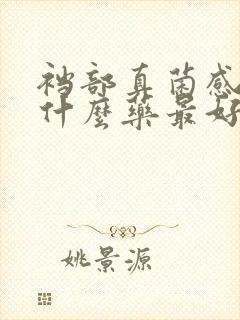 裆部真菌感
什麼药最好
姚景源